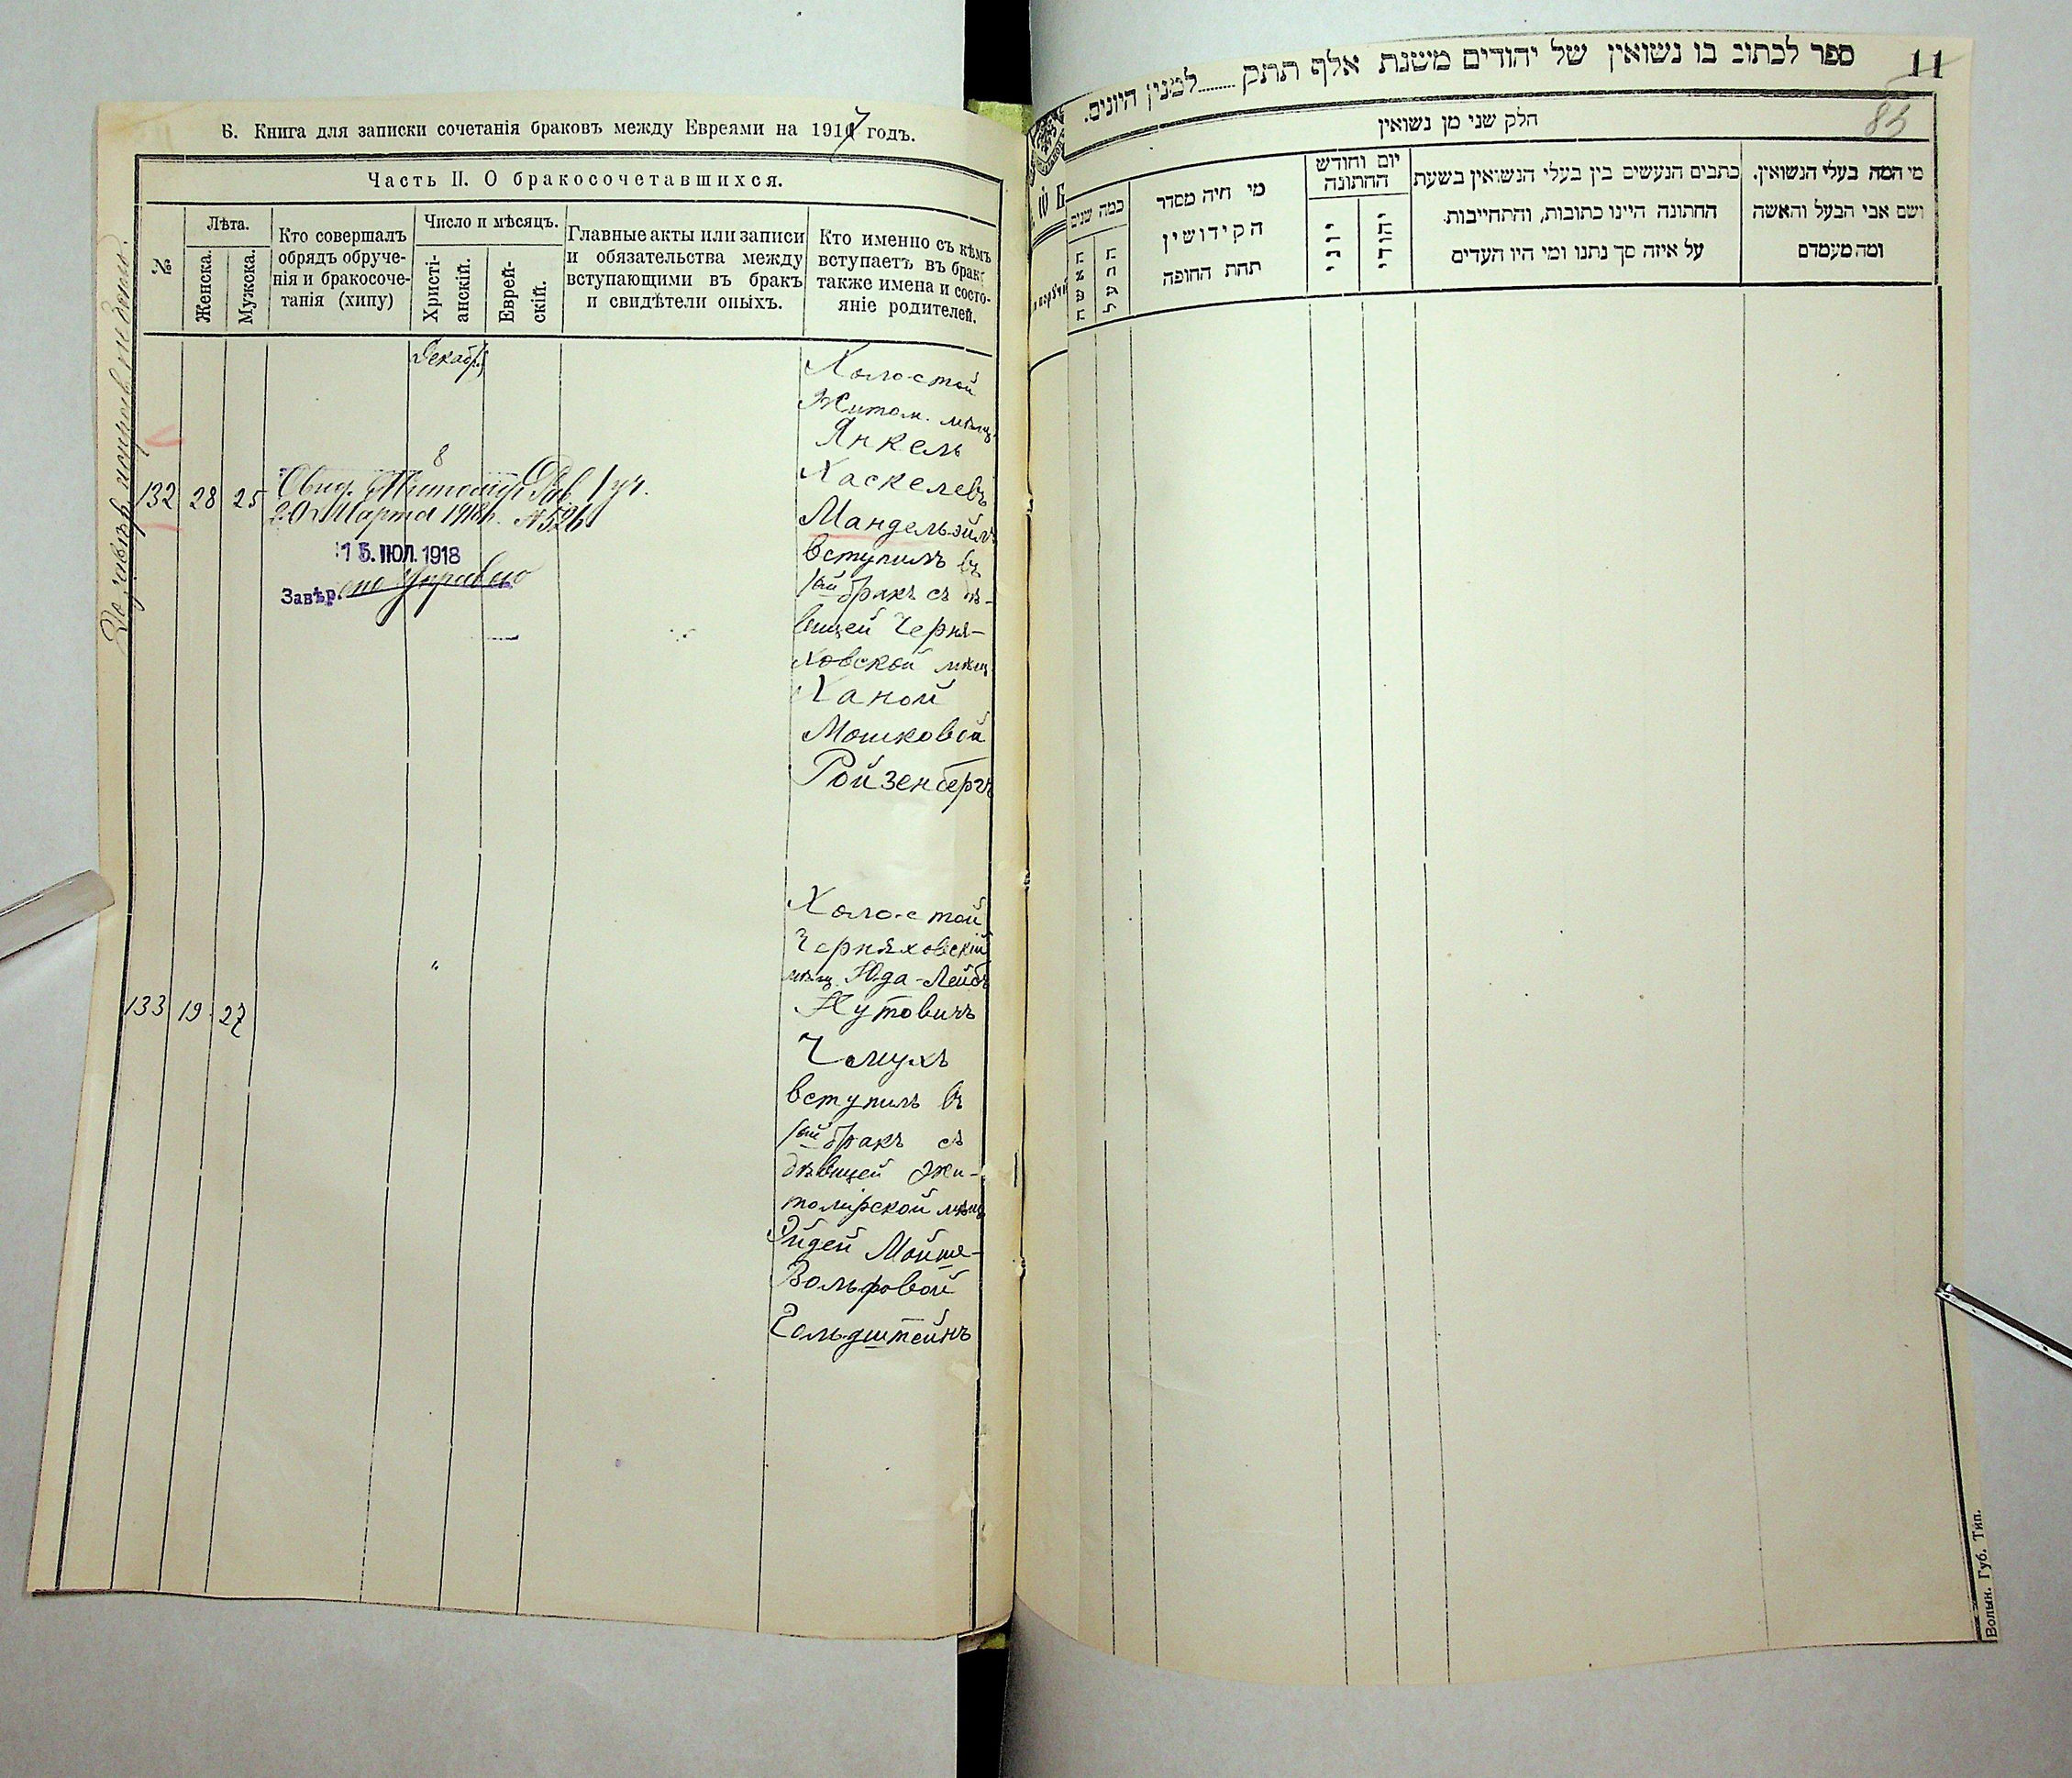 Б. Книга для записки сочетанія браковъ между Евреями на 1917 годъ.
Часть II. О бракосочетавшихся.
№
Лѣта.
Женска.
Мужска.
Кто совершалъ
обрядъ обруче-
нія и бракосоче-
танія (хипу)
Число и мѣсяцъ.
Христі-
анскій.
Еврей-
скій.
Главные акты или записи
и обязательства между
вступающими въ бракъ
и свидѣтели оныхъ.
Кто именно съ кѣмъ
вступаетъ въ бракъ
также имена и состо-
яніе родителей.
Декабрь
8
132 28 25
20 Марта 1918 г. № 526
15. ІЮЛ. 1918
Завѣр.
Холостой
Житом. мѣщ.
Янкель
Хаскелевъ
Мандельэйль
вступилъ въ
1ый бракъ съ дѣ-
вицей Черня-
ховской мѣщ.
Ханой
Мошковой
Ройзенбергъ
133 19 27
"
Холостой
Черняховскій
мѣщ. Юда-Лейбъ
Нутовичъ
Чмухъ
вступилъ въ
1ый бракъ съ
дѣвицей Жи-
томірской мѣщ
Эйдей Мойше-
Вольфовой
Гольдштейнъ
ספר לכתוב בו נשואין של יהודים משנת אלף תתק........למנין היונים.
11
85
חלק שני מן נשואין
כמה שנים
האשה
הבעל
מי היה מסדר
הקידושין
תחת החופה
יום וחודש
החתונה
יוני
יהודי
כתבים הנעשים בין בעלי הנשואין בשעת
החתונה היינו כתובות, והתחייבות
על איזה סך נתנו ומי היו העדים
מי המה בעלי הנשואין.
ושם אבי הבעל והאשה
ומה מעמדם
Волын. Губ. Тип.